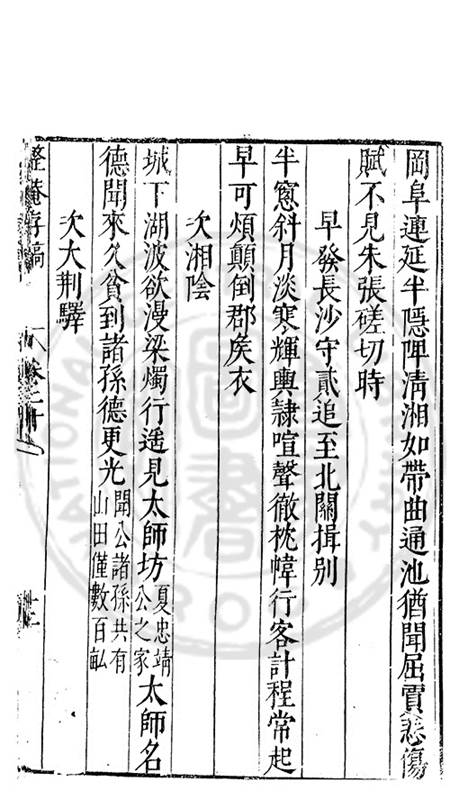 岡阜連延半隱陴清湘如帶曲通池猶聞屈賈悲傷
賦不見朱張磋切時
早發長沙守貳追至北關揖別
半窻斜月淡寒輝輿隷喧聲徹枕幃行客計程常起
早可煩顛倒郡矦衣
次湘陰
城下湖波欲漫梁燭行遥見太師坊夏忠靖公之家太師名
德聞來久貧到諸孫德更光聞公諸孫共有山田僅數百畝
次大荆驛
整菴存稿
卷之十